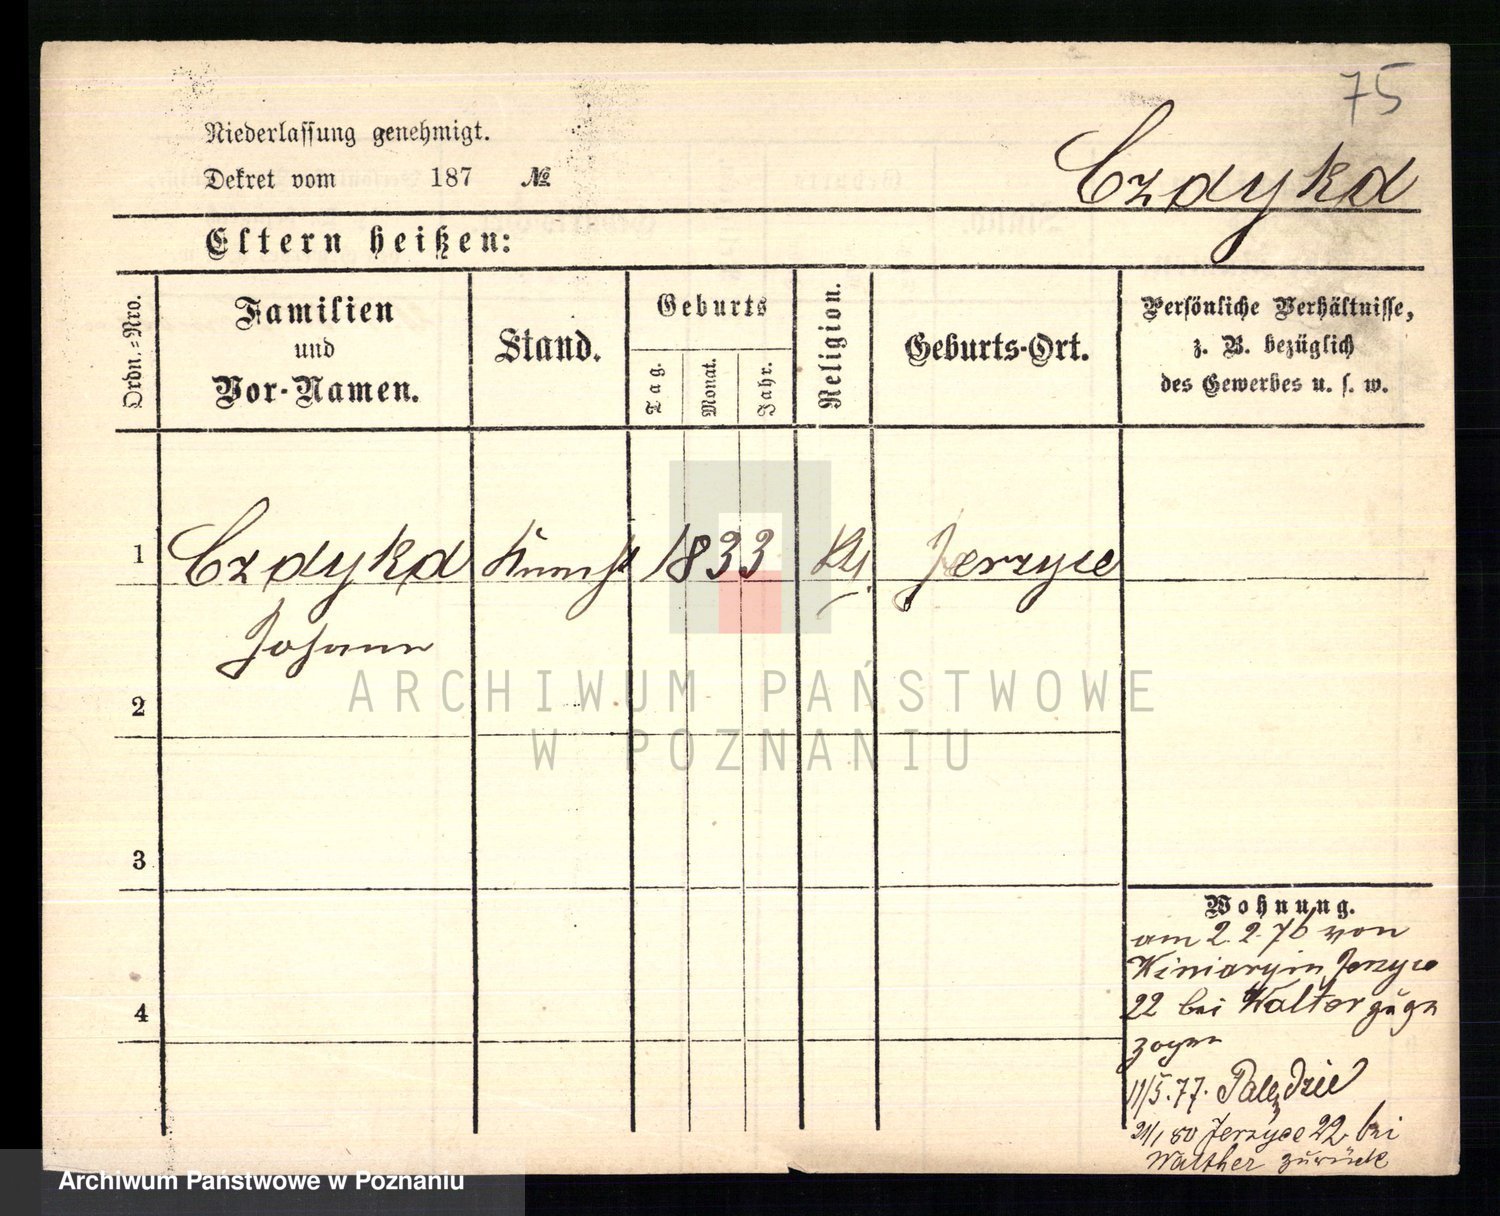 75
Niederlassung genehmigt.
Dekret vom 187 №
Czdykd
Eltern heißen:
Ordn.-Nro.
Familien
und
Vor-Namen.
Stand.
Geburts
Tag.
Monat.
Jahr.
Religion.
Geburts-Ort.
Persönliche Verhältnisse,
z. B. bezüglich
des Gewerbes u. s. w.
1
Czdykd
Johann
1833
Jerzyce
2
ARCHIWUM PAŃSTWOWE
W POZNANIU
3
4
Wohnung.
am 2.2.76 von
Winiary in Jerzyce
22 bei Walter zuge
zogen
11/5.77. Palędzie
21/1 80 Jerzyce 22 bei
Walther zurück
Archiwum Państwowe w Poznaniu